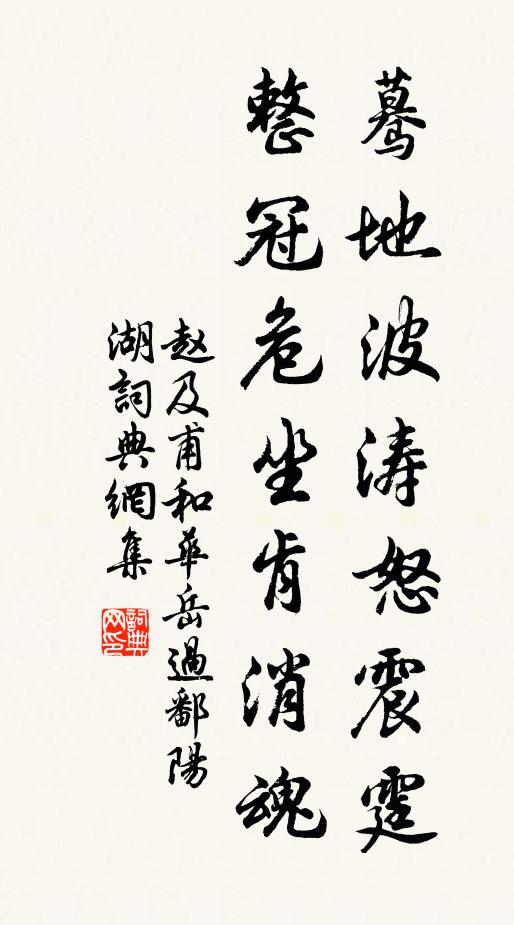 驀地波涛怒震霆
整冠危坐肯消魂
赵及甫和華岳過鄱陽
湖詞典網集
詞典网印